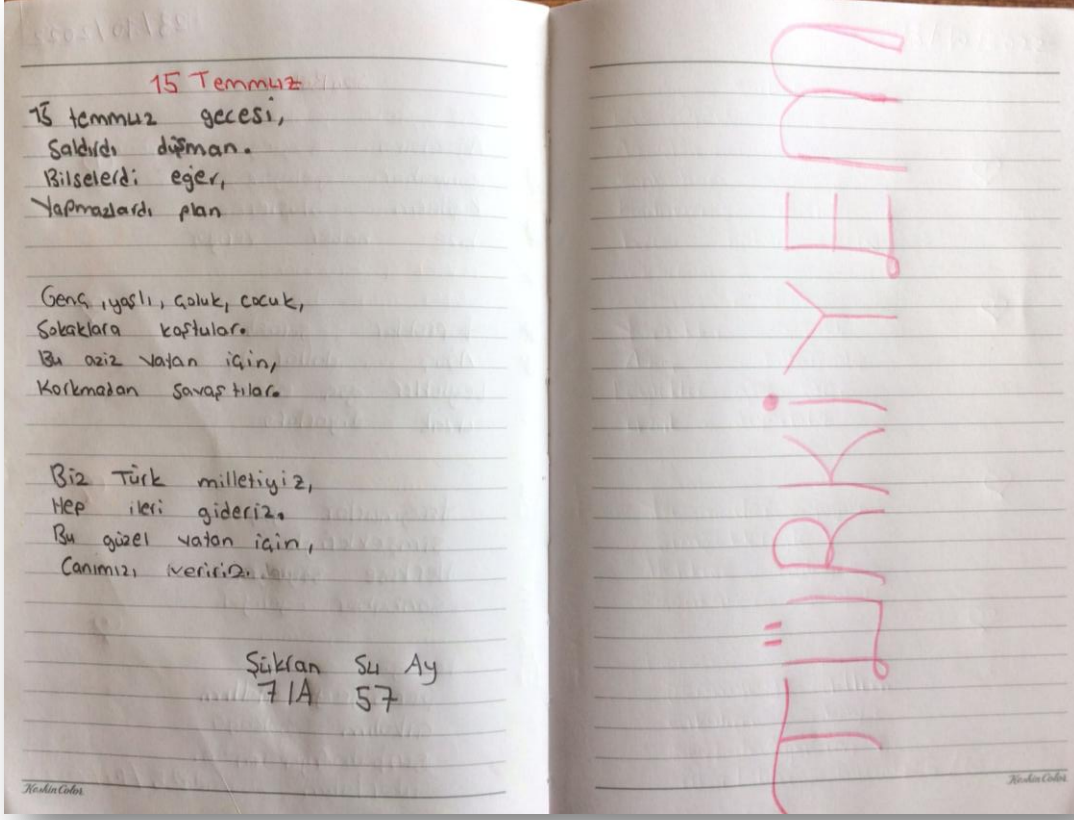 15 Temmuz
15 temmuz gecesi,
Saldırdı düşman.
Bilselerdi eğer,
Yapmazlardı plan
Genç, yaşlı, çoluk, cocuk,
Sokaklara koştular.
Bu aziz vatan için,
Korkmadan savaştılar.
Biz Türk milletiyiz,
Hep ileri gideriz.
Bu güzel vatan için,
Canımızı veririz.
Şükran Su Ay
7/A 57
Keskin Color
TÜRKİYEM
Keskin Color